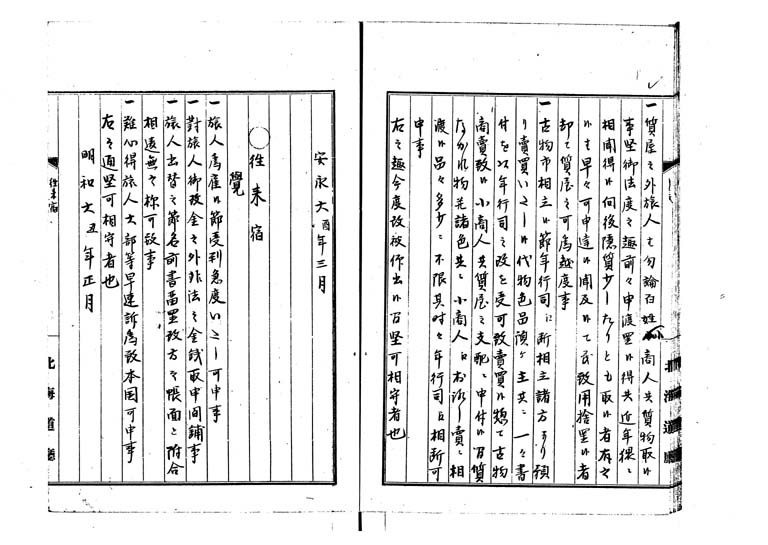 一質屋之外旅人ハ勿論百姓商人共質物取候
事堅御法度之趣前々申渡置候得共近年猥ニ
相聞得候向後隠質少したりとも取候者有之
候ハヽ早々可申達候聞及候て茂致用捨置候者
却て質屋之可為越度事
一古物市相立候節年行司ニ断相立諸方より預
り賣買いたし候代物色品預ケ主共ニ一々書
付を以年行司之改を受可致賣買候惣て古物
商賣致候小商人共質屋之支配ニ申付候間質
流れ物并諸色共ニ小商人江おろし賣ニ相
渡候品々多少ニ不限其時々年行司江相断可
申事
右之趣今度改被仰出候間堅可相守者也
安永六酉年三月
○往来宿
覺
一旅人為雇候節受判急度いたし可申事
一對旅人御役金之外非法之金銭取申間鋪事
一旅人出替之節名前書留置改方之帳面と附合
相違無之様可致事
一難心得旅人ハ部等早速訴為致本国可申事
右之通堅可相守者也
明和六丑年正月
往来宿
北海道廳
北海道廳